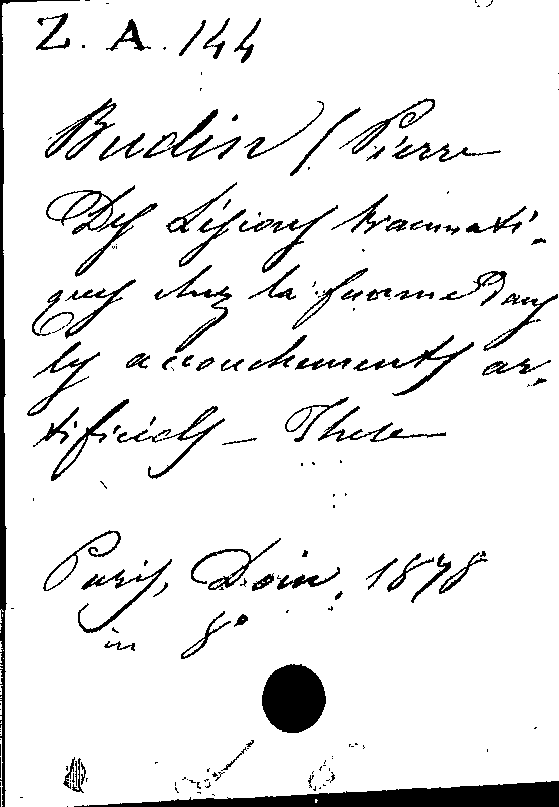 Z. A. 144
Budin / Pierre
Des Lésions traumati-
ques chez la femme Dans
les accouchements ar-
tificiels – These
Paris, Doin, 1878
in 8°